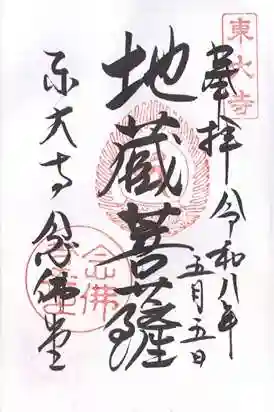 東大寺
奉拝
令和八年
五月五日
地蔵菩薩
東大寺念佛堂
念佛